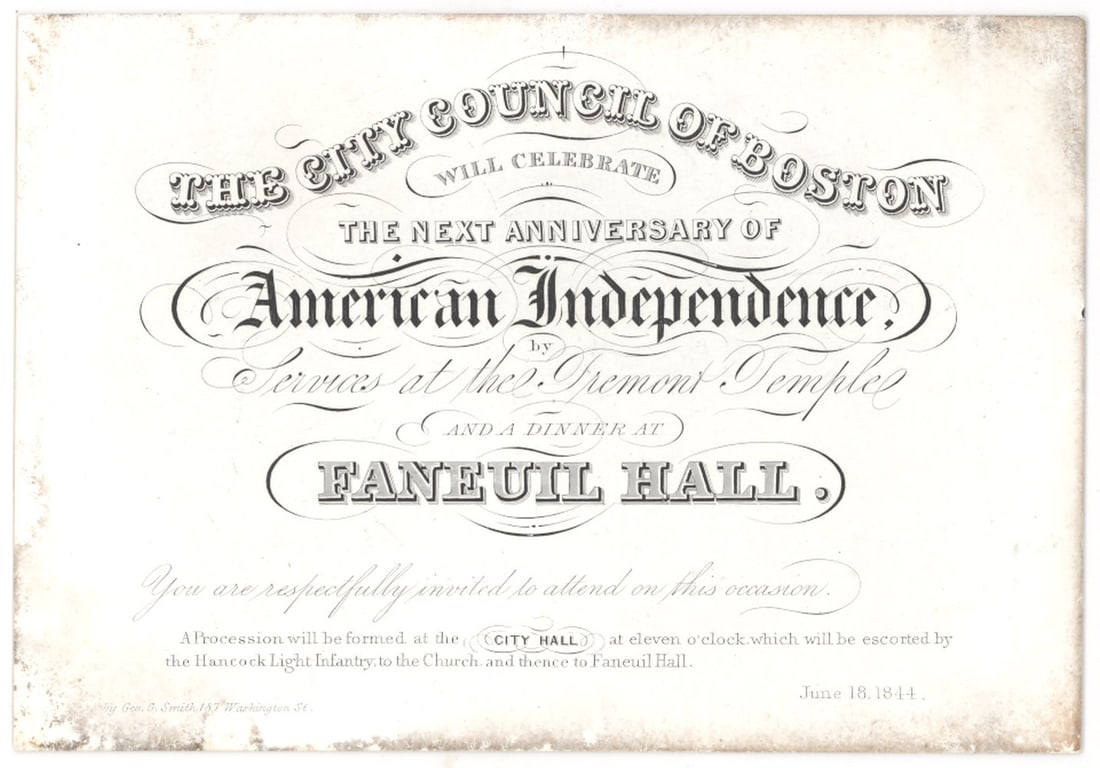 THE CITY COUNCIL OF BOSTON
WILL CELEBRATE
THE NEXT ANNIVERSARY OF
American Independence,
by
Services at the Tremont Temple
AND A DINNER AT
FANEUIL HALL.
You are respectfully invited to attend on this occasion.
A Procession will be formed at the CITY HALL at eleven o'clock, which will be escorted by
the Hancock Light Infantry, to the Church, and thence to Faneuil Hall.
June 18. 1844.
by Geo. G. Smith, 187 Washington St.